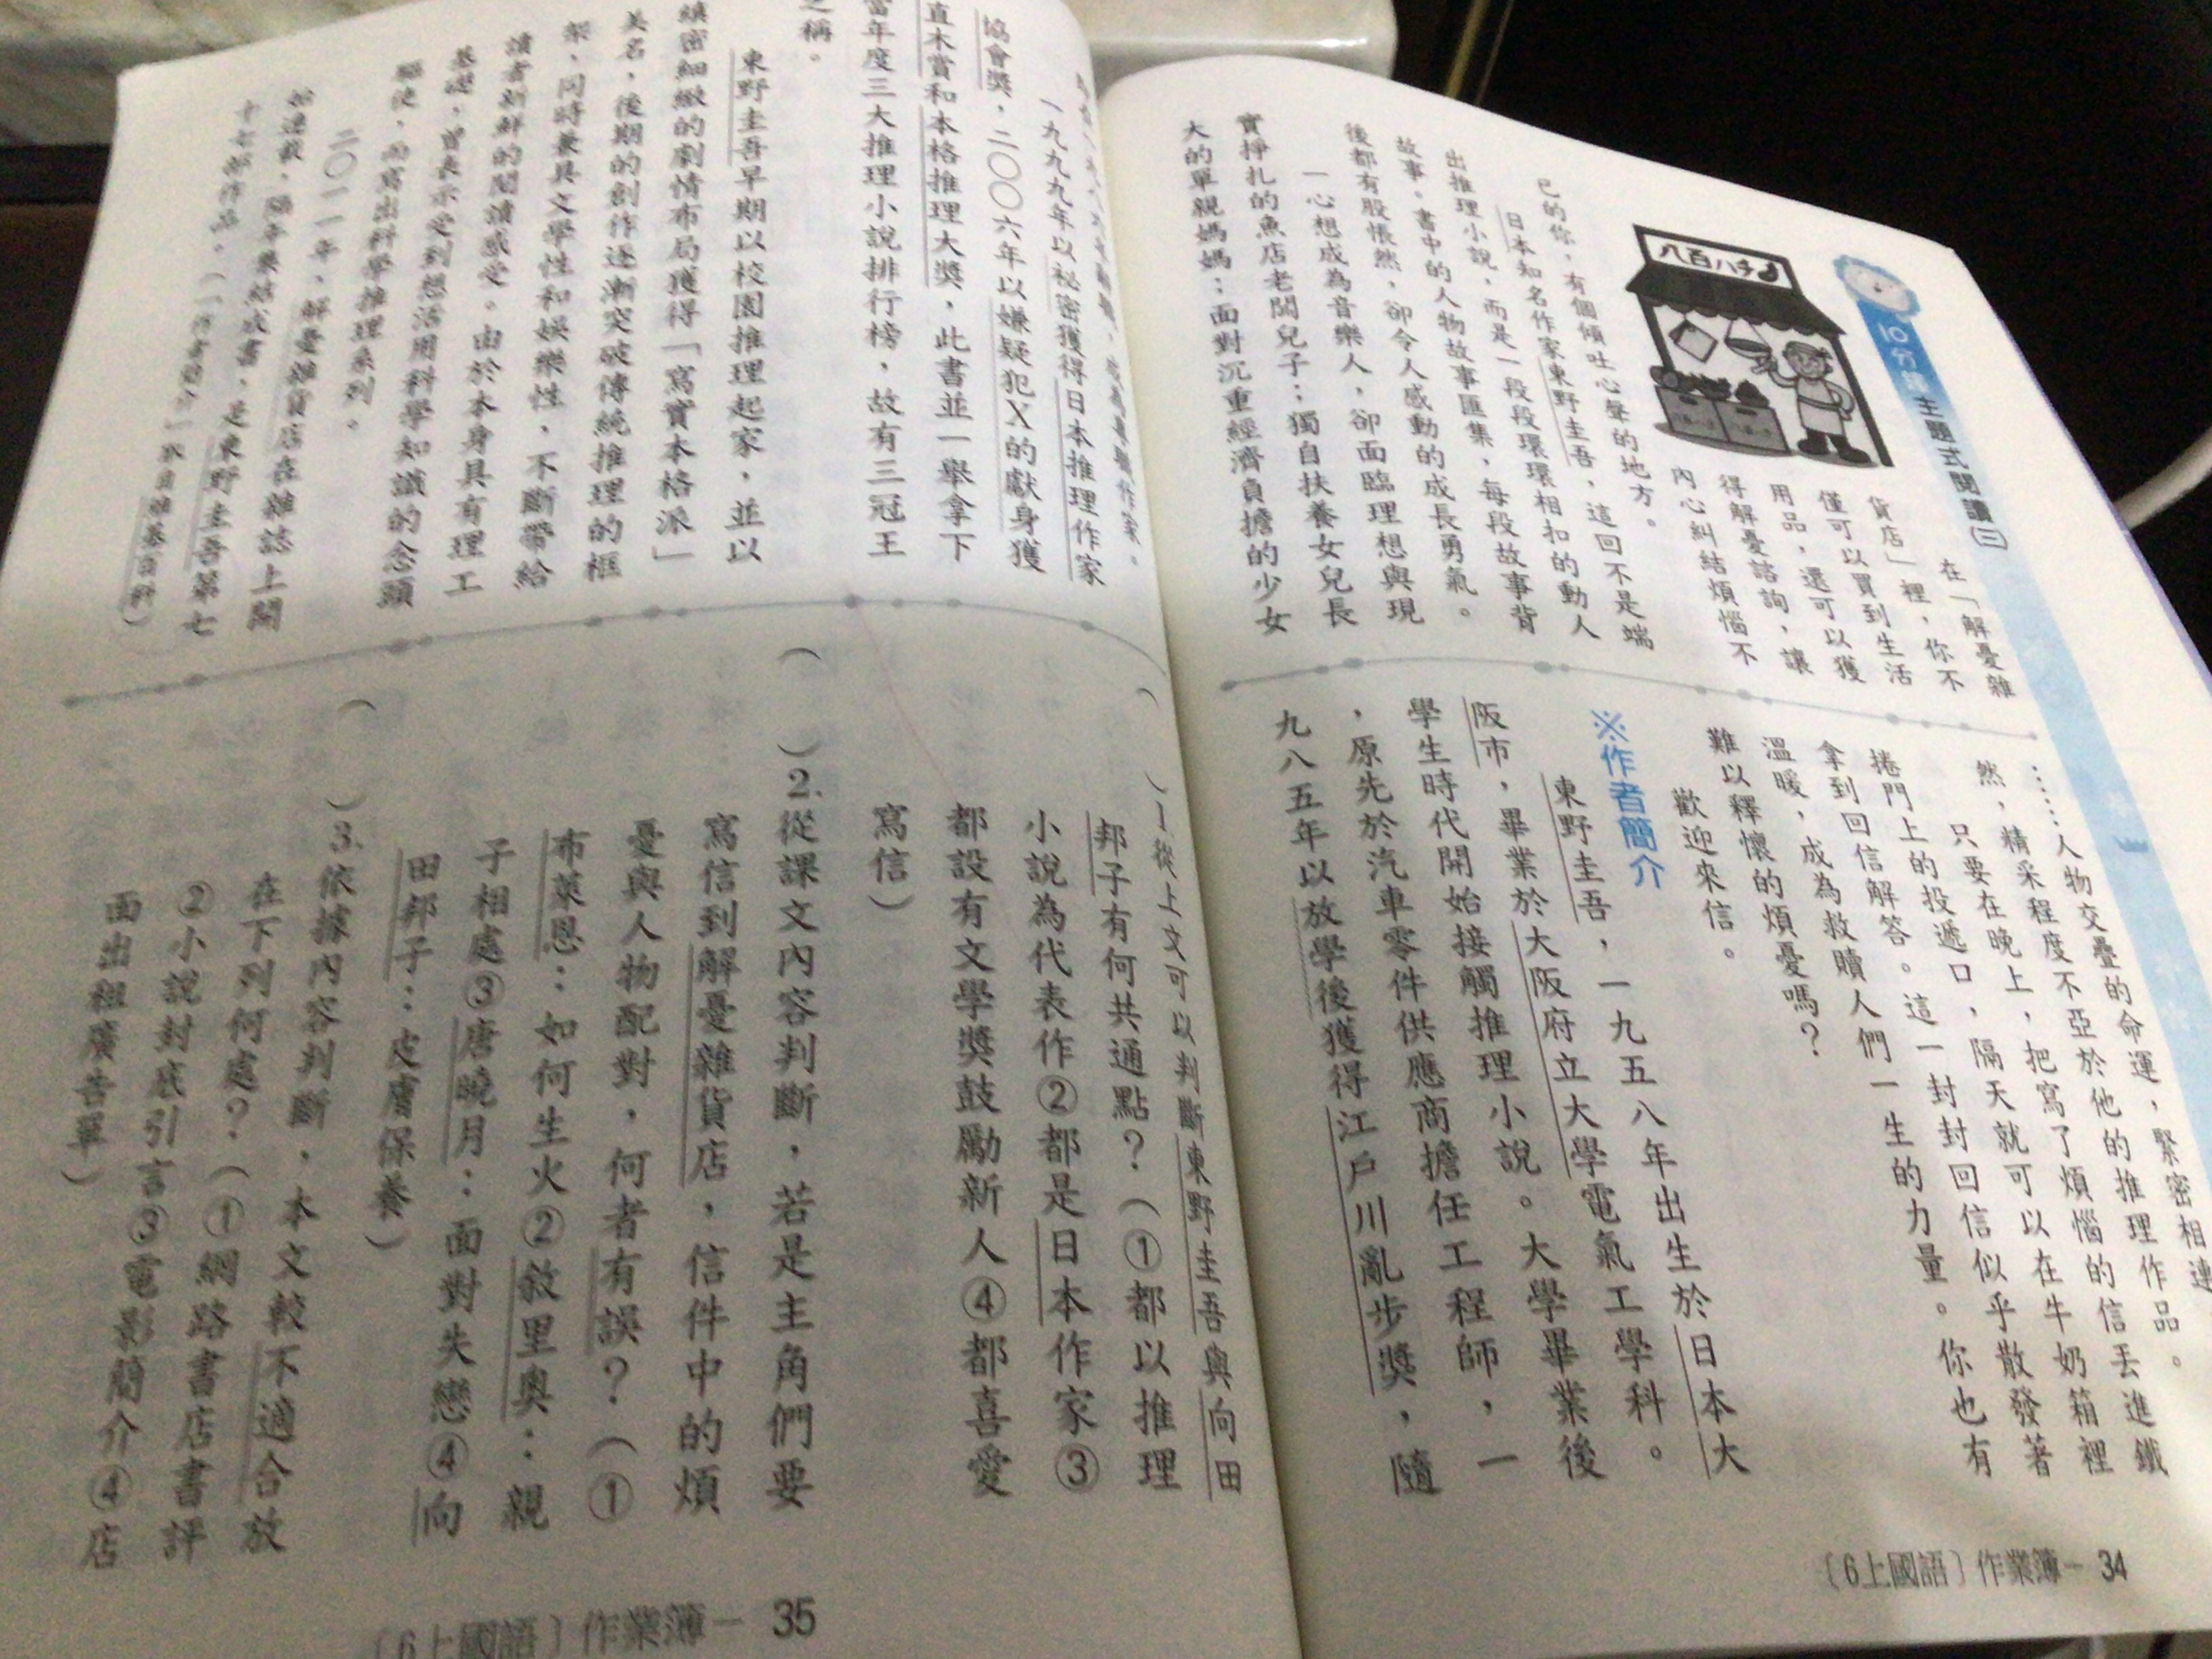 10分鐘主題式閱讀(三)
八百ハチ
在「解憂雜
貨店」裡，你不
僅可以買到生活
用品，還可以獲
得解憂諮詢，讓
內心糾結煩惱不
已的你，有個傾吐心聲的地方。
日本知名作家東野圭吾，這回不是端
出推理小說，而是一段段環環相扣的動人
故事。書中的人物故事匯集，每段故事背
後都有股悵然，卻令人感動的成長勇氣。
一心想成為音樂人，卻面臨理想與現
實掙扎的魚店老闆兒子；獨自扶養女兒長
大的單親媽媽；面對沉重經濟負擔的少女
……人物交疊的命運，緊密相連
然，精采程度不亞於他的推理作品。
只要在晚上，把寫了煩惱的信丟進鐵
捲門上的投遞口，隔天就可以在牛奶箱裡
拿到回信解答。這一封封回信似乎散發著
溫暖，成為救贖人們一生的力量。你也有
難以釋懷的煩憂嗎？
歡迎來信。
※作者簡介
東野圭吾，一九五八年出生於日本大
阪市，畢業於大阪府立大學電氣工學科。
學生時代開始接觸推理小說。大學畢業後
，原先於汽車零件供應商擔任工程師，一
九八五年以放學後獲得江戶川亂步獎，隨
〔6上國語〕作業簿－34
作家。
一九九九年以祕密獲得日本推理作家
協會獎，二〇〇六年以嫌疑犯X的獻身獲
直木賞和本格推理大獎，此書並一舉拿下
當年度三大推理小說排行榜，故有三冠王
之稱。
東野圭吾早期以校園推理起家，並以
縝密細緻的劇情布局獲得「寫實本格派」
美名，後期的創作逐漸突破傳統推理的框
架，同時兼具文學性和娛樂性，不斷帶給
讀者新鮮的閱讀感受。由於本身具有理工
基礎，曾表示受到想活用科學知識的念頭
驅使，而寫出科學推理系列。
二〇一一年，解憂雜貨店在雜誌上開
始連載，隔年集結成書，是東野圭吾第七
十七部作品。（「作者簡介」取自維基百科）
（　）1.從上文可以判斷東野圭吾與向田
邦子有何共通點？（①都以推理
小說為代表作②都是日本作家③
都設有文學獎鼓勵新人④都喜愛
寫信）
（　）2.從課文內容判斷，若是主角們要
寫信到解憂雜貨店，信件中的煩
憂與人物配對，何者有誤？（①
布萊恩：如何生火②敘里奧：親
子相處③唐曉月：面對失戀④向
田邦子：皮膚保養）
（　）3.依據內容判斷，本文較不適合放
在下列何處？（①網路書店書評
②小說封底引言③電影簡介④店
面出租廣告單）
〔6上國語〕作業簿－35